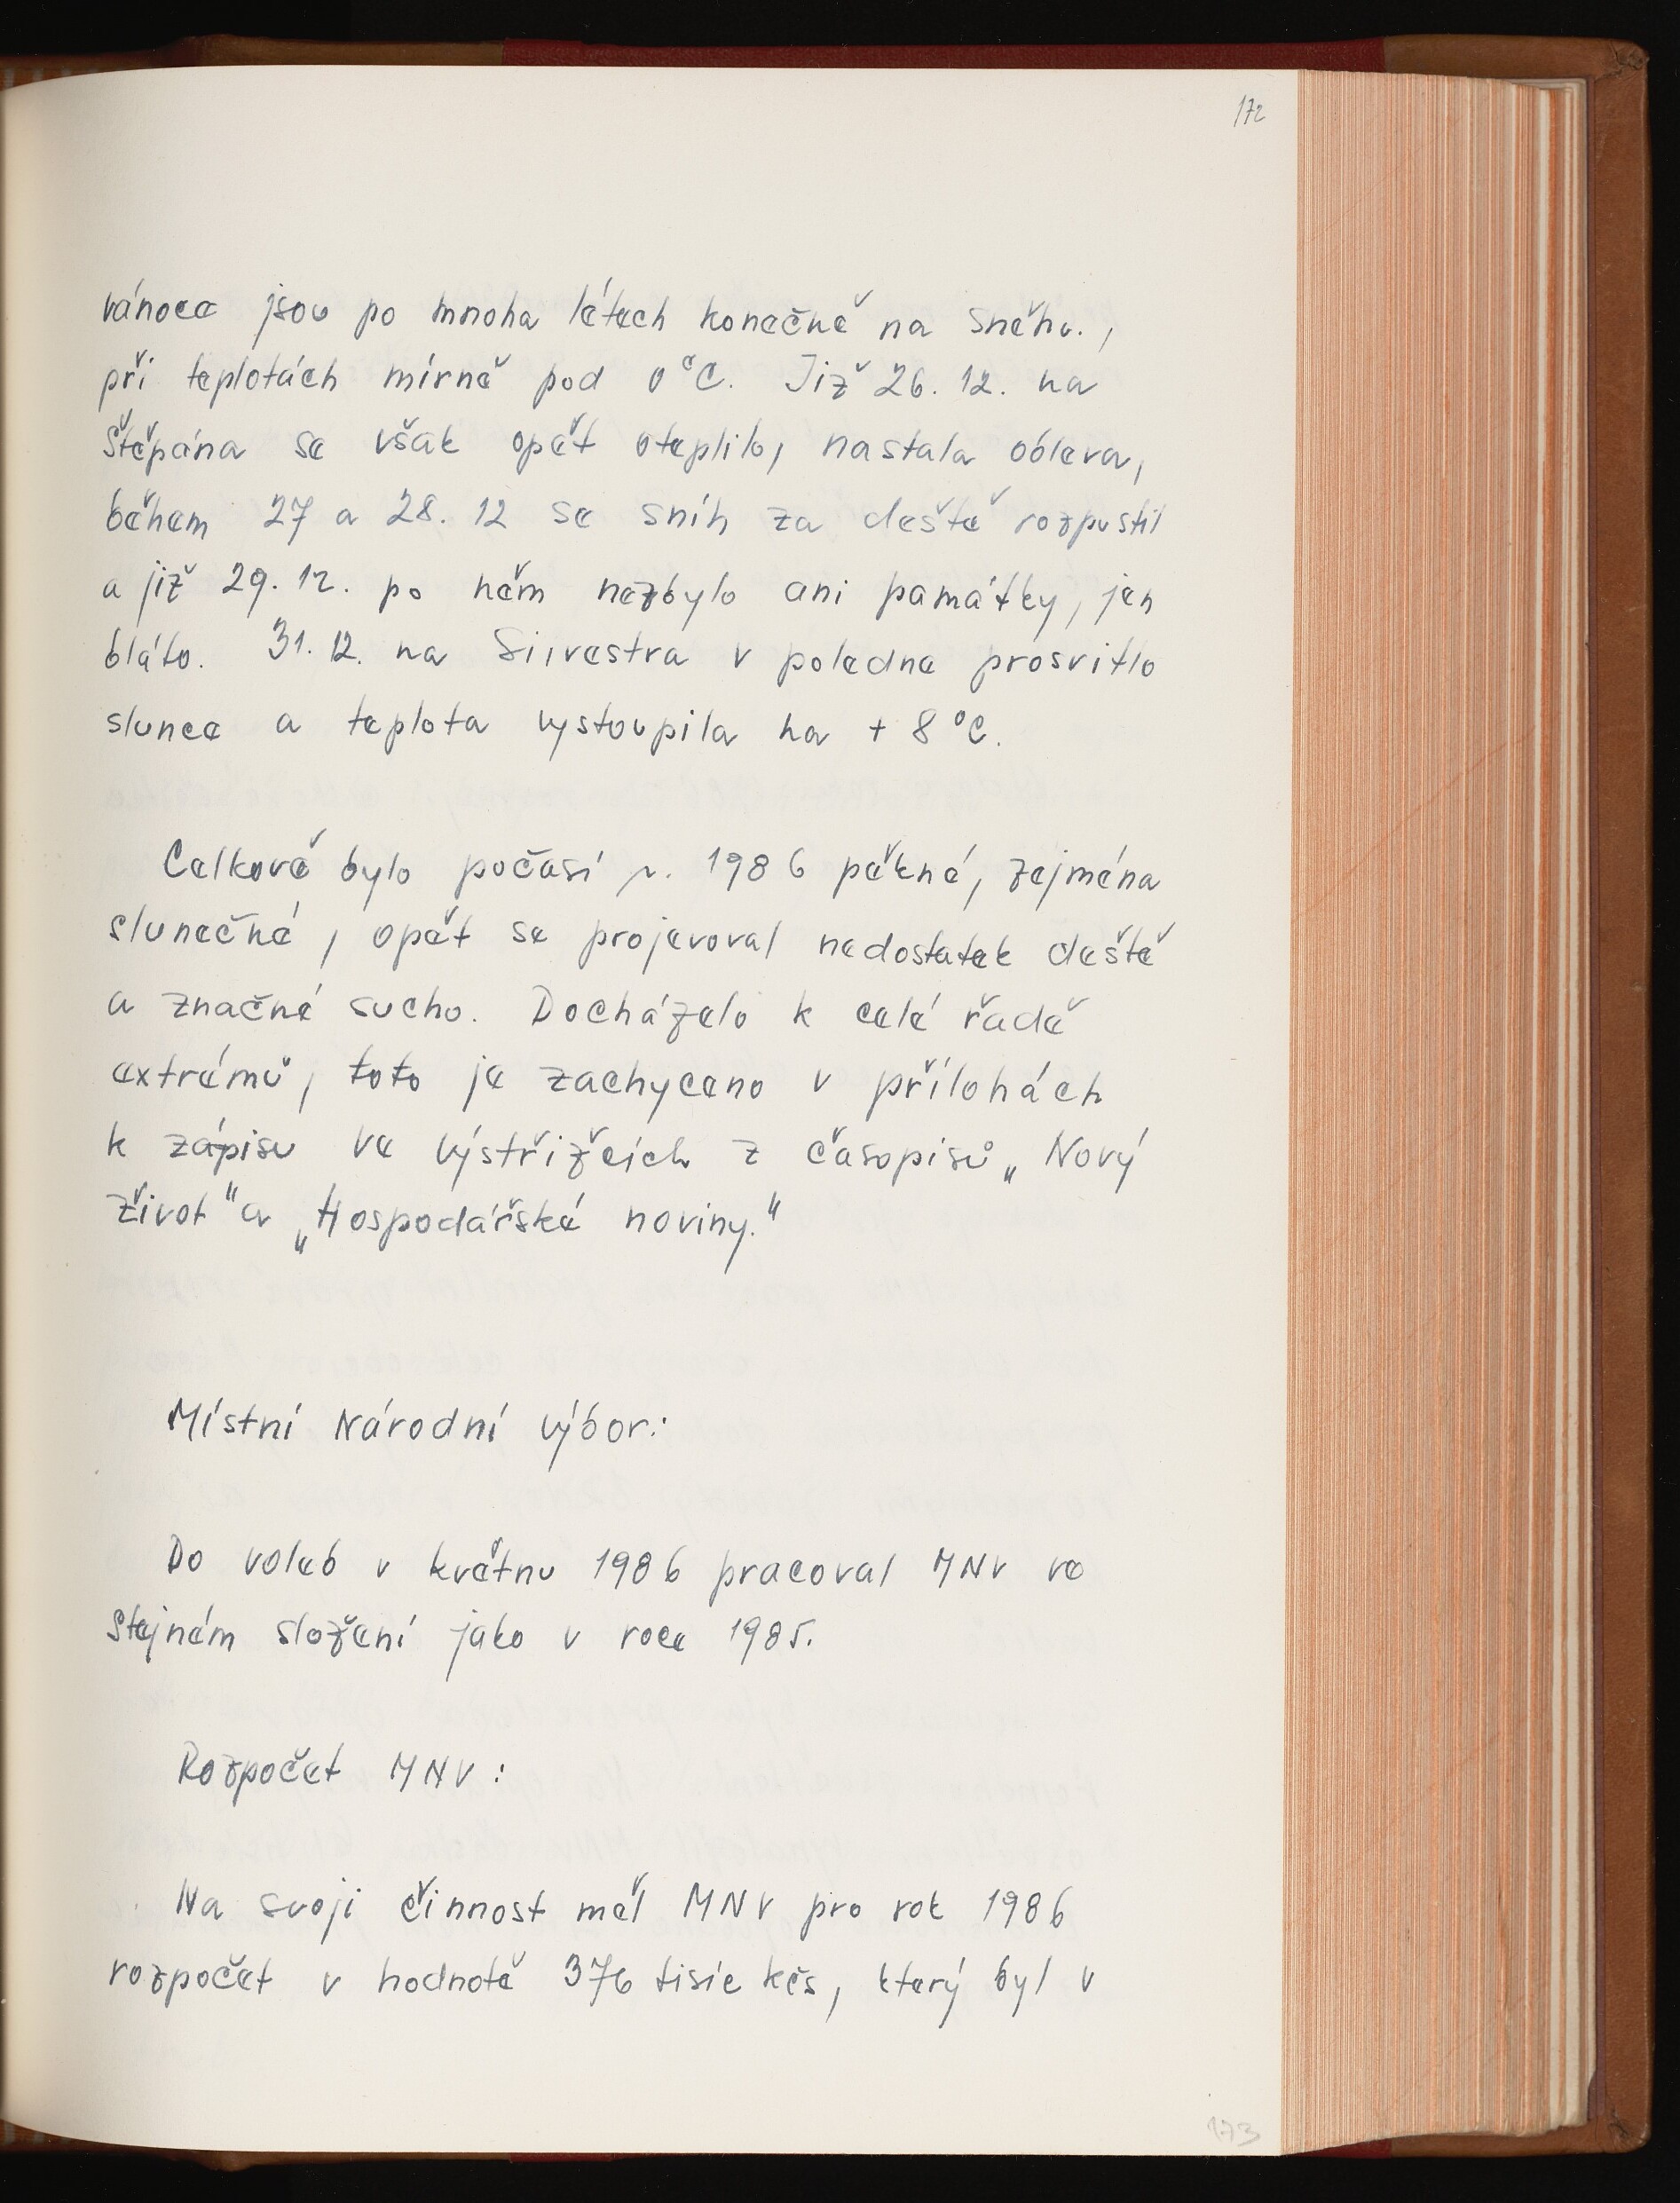 172
vánoce jsou po mnoha létech konečně na sněhu.,
při teplotách mírně pod 0°C. Již 26. 12. na
Štěpána se však opět oteplilo, nastala obleva,
během 27 a 28. 12 se sníh za deště rozpustil
a již 29. 12. po něm nezbylo ani památky, jen
bláto. 31. 12. na Silvestra v poledne prosvitlo
slunce a teplota vystoupila na + 8 °C.
Celkově bylo počasí r. 1986 pěkné, zejména
slunečné, opět se projevoval nedostatek deště
a značné sucho. Docházelo k celé řadě
extrémů, toto je zachyceno v přílohách
k zápisu ve výstřižcích z časopisů „Nový
život" a „Hospodářské noviny."
Místní Národní výbor:
Do voleb v květnu 1986 pracoval MNV ve
stejném složení jako v roce 1985.
Rozpočet MNV:
Na svoji činnost měl MNV pro rok 1986
rozpočet v hodnotě 376 tisíc kčs, který byl v
173